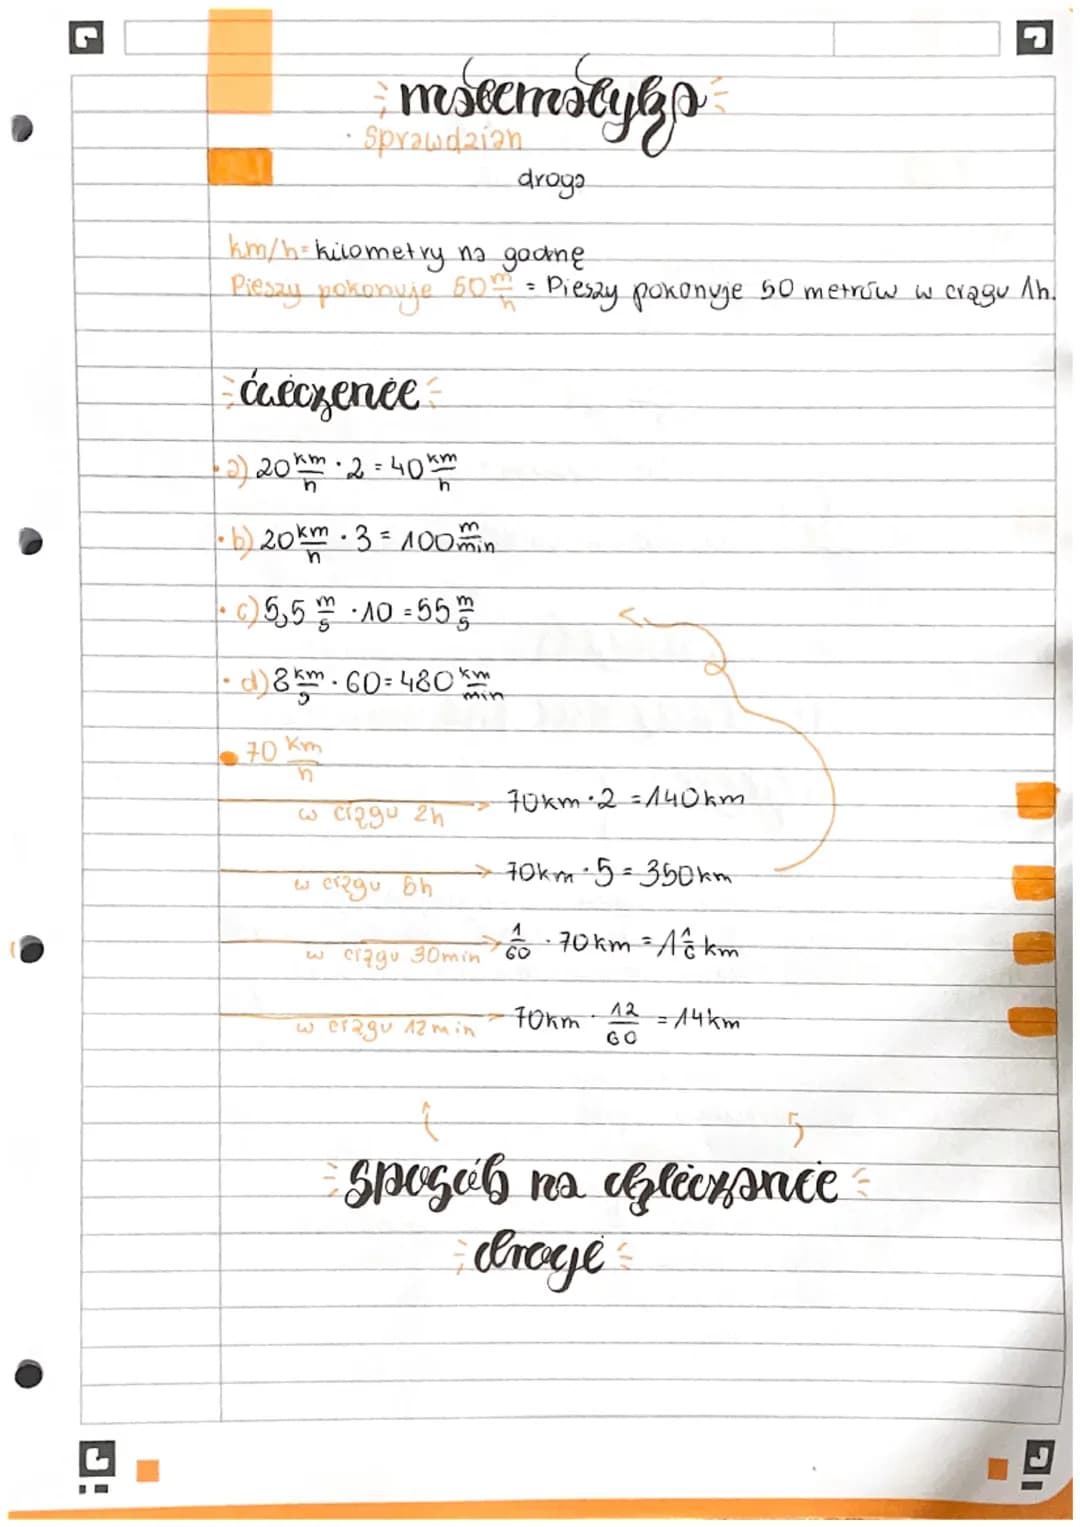 matematyka
· Sprawdzian
droga
km/h = kilometry na godnę
Pieszy pokonuje 50 m/h = Pieszy pokonuje 50 metrów w ciągu 1h.
ćwiczenie
· a) 20 km/h · 2 = 40 km/h
· b) 20 km/h · 3 = 100 m/min
· c) 5,5 m/s · 10 = 55 m/s
· d) 8 km/s · 60 = 480 km/min
• 70 km/h
w ciągu 2h → 70km · 2 = 140km
w ciągu 5h → 70km · 5 = 350km
w ciągu 30min → 1/60 · 70km = 1 1/6 km
w ciągu 12min → 70km · 12/60 = 14km
sposób na obliczanie
drogi